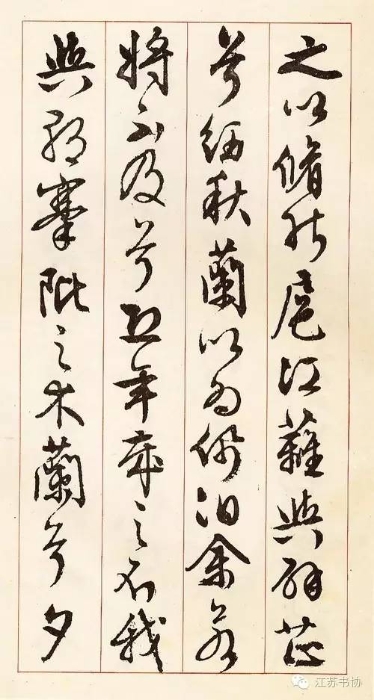 之以脩能扈江蘺與辟芷
兮紉秋蘭以為佩汩余若
將不及兮恐年歲之不我
與朝搴阰之木蘭兮夕
江苏书协